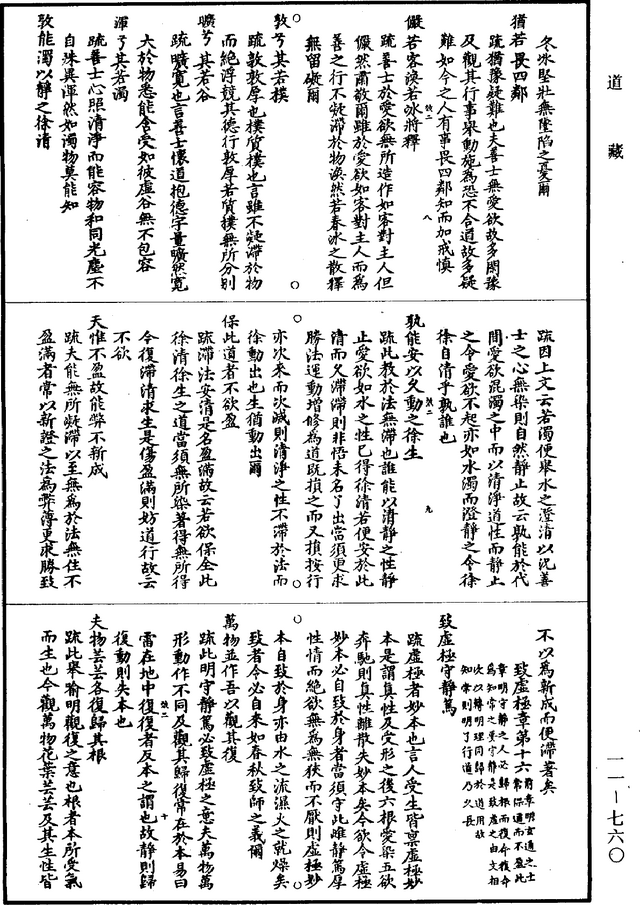 道藏
冬冰堅壯無墜陷之憂爾
猶若畏四鄰
疏猶豫疑難也夫善士無愛欲故多閑豫
及觀其行事舉動施為恐不合道故多疑
難如今之人有事畏四鄰知而加戒慎
儼若客渙若冰將釋
疏善士於愛欲無所造作如客對主人但
儼然肅敬爾雖於愛欲如客對主人而為
善之行不凝滯於物渙然若春冰之散釋
無留礙爾
敦兮其若樸
疏敦敦厚也樸質樸也言雖不凝滯於物
而絕浮競其德行敦厚若質樸無所分別
曠兮其若谷
疏曠寬也言善士懷道抱德字量曠然寬
大於物悉能含受如彼虛谷無不包容
渾兮其若濁
疏善士心照清淨而能容物和同光塵不
自殊異渾然如濁物莫能知
孰能濁以靜之徐清
疏因上文云若濁便舉水之澄清以況善
士之心無染則自然靜止故云孰能於代
間愛欲混濁之中而以清淨道性而靜止
之令愛欲不起亦如水濁而澄靜之令徐
徐自清乎孰誰也
孰能安以久動之徐生
疏此教於法無滯也誰能以清靜之性靜
止愛欲如水之性已得徐清若便安於此
清而久滯滯則非悟未名了出當須更求
勝法運動增修為道既損之而又損按行
亦次來而次滅則清淨之性不滯於法而
徐動出也生猶動出爾
保此道者不欲盈
疏滯法安清是名盈滿故云若欲保全此
徐清徐生之道當須無所染著得無所得
今復滯清求生是傷盈滿則妨道行故云
不欲
夫惟不盈故能弊不新成
疏夫能無所凝滯以至無為於法無住不
盈滿者常以新證之法為弊薄更求勝致
不以為新成而便滯著矣
致虛極章第十六
致虛極守靜篤
疏虛極者妙本也言人受生皆稟虛極妙
本是謂真性及受形之後六根愛染五欲
奔馳則真性離散失妙本矣今欲令虛極
妙本必自致於身者當須守此雌靜篤厚
性情而絕欲無為無狹而不厭則虛極妙
本自致於身亦由水之流濕火之就燥矣
致者令必自來如春秋致師之義爾
萬物並作吾以觀其復
疏此明守靜篤必致虛極之意夫萬物萬
形動作不同及觀其歸復常在於本易曰
雷在地中復復者反本之謂也故靜則歸
復動則失本也
夫物芸芸各復歸其根
疏此舉喻明觀復之意也根者本所受氣
而生也今觀萬物花葉芸芸及其生性皆
一一—七六〇